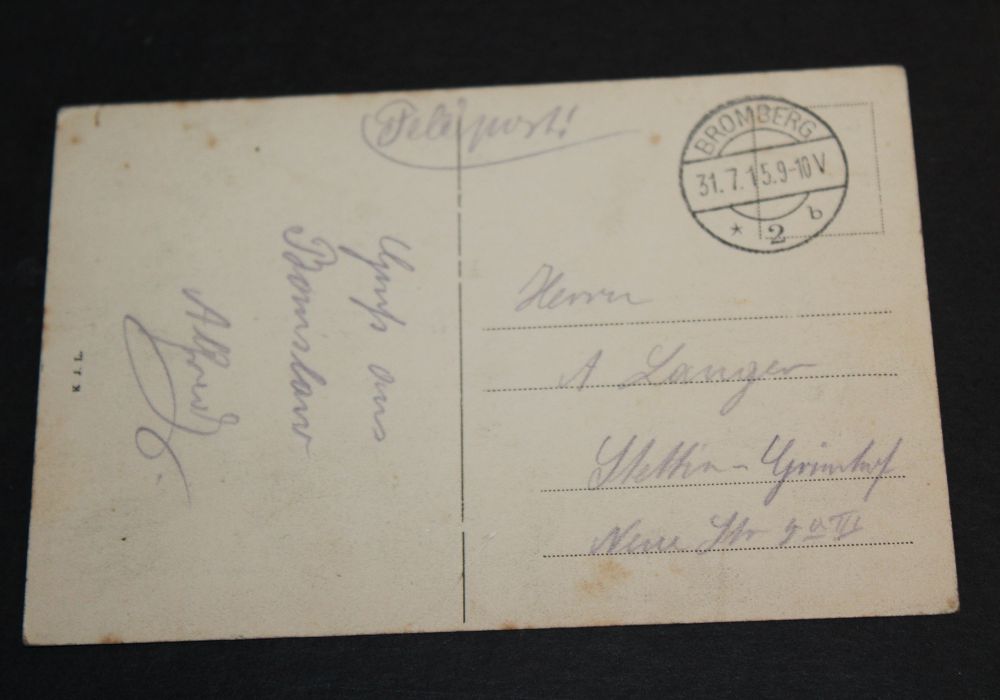 Feldpost!
BROMBERG
31.7.15.9-10V
* 2 b
Gruß aus
Alfred
Herrn
A Langer
Stettin - Grünhof
Neue Str 5a III
K J. L.